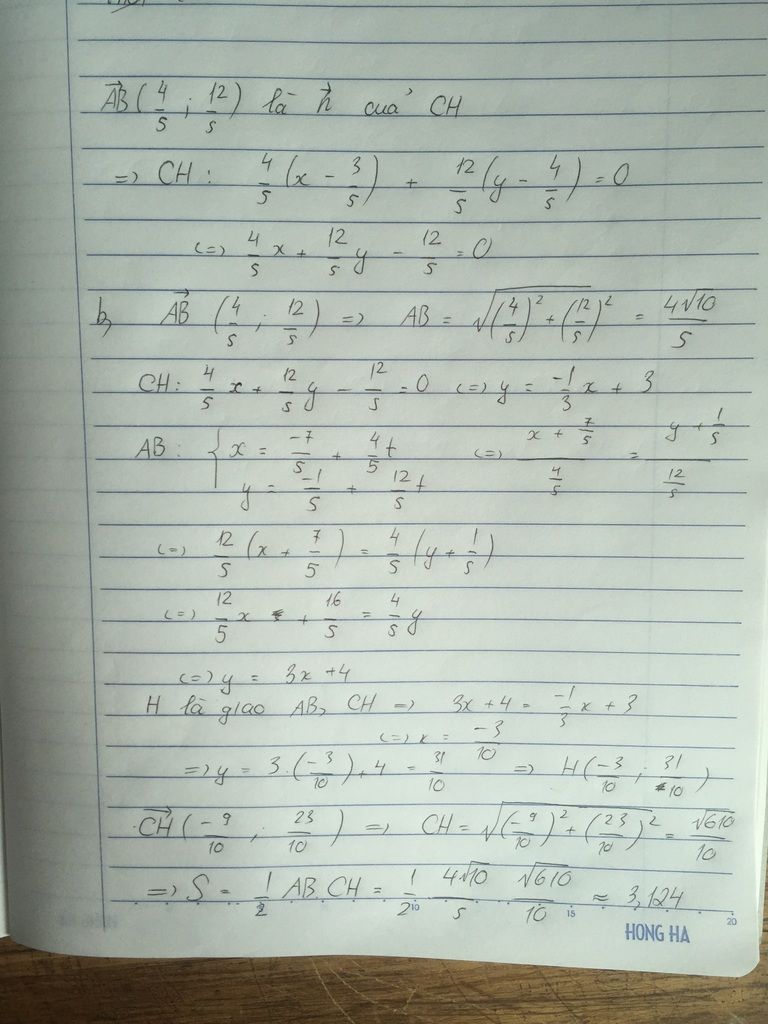 AB⃗ (4/5 ; 12/5) là n⃗ của CH
=> CH : 4/5 (x - 3/5) + 12/5 (y - 4/5) = 0
<=> 4/5 x + 12/5 y - 12/5 = 0
b, AB⃗ (4/5 ; 12/5) => AB = √((4/5)² + (12/5)²) = 4√10/5
CH: 4/5 x + 12/5 y - 12/5 = 0 <=> y = -1/3 x + 3
AB : { x = -7/5 + 4/5 t <=> (x + 7/5)/(4/5) = (y + 1/5)/(12/5)
y = -1/5 + 12/5 t
<=> 12/5 (x + 7/5) = 4/5 (y + 1/5)
<=> 12/5 x + 16/5 = 4/5 y
<=> y = 3x + 4
H là giao AB, CH => 3x + 4 = -1/3 x + 3
<=> x = -3/10
=> y = 3.(-3/10) + 4 = 31/10 => H(-3/10 ; 31/10)
CH⃗ (-9/10 ; 23/10) => CH = √((-9/10)² + (23/10)²) = √610/10
=> S = 1/2 AB.CH = 1/2 4√10/5 √610/10 ≈ 3,124
10 15 20
HONG HA